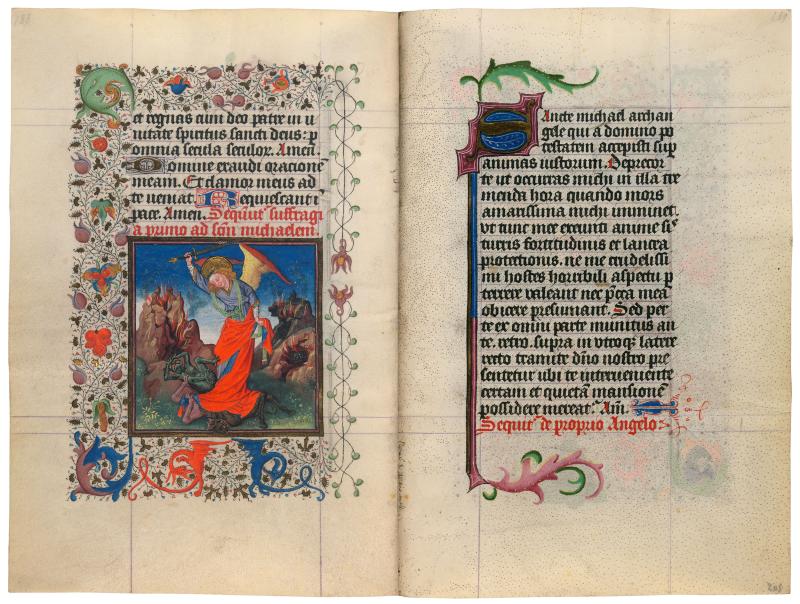 et regnas cum deo patre in u
nitate spiritus sancti deus: p
omnia secula seculor. Amen.
Domine exaudi oratione
meam. Et clamor meus ad
te veniat. Requiescant i
pace. Amen. Sequnt' suffragi
a primo ad scm michaelem.
Sancte michael archan
gele qui a domino po
testatem accepisti sup
animas iustorum. Deprecor
te ut occurras michi in illa tre
menda hora quando mors
amarissima michi iminnet.
Ut tunc mee exeunti anime si'
tueris fortitudinis et lancea
protectionis. ne me crudelissi
mi hostes horribili aspectu p
terrere valeant nec pcca mea
obicere presumant. Sed per
te ex omni parte munitus an
te. retro. supra in utroq latere
recto tramite dno nostro pre
sentetur ubi te interveniente
certam et quietam mansione
possidere mereat'. Am.
Sequit' de proprio Angelo